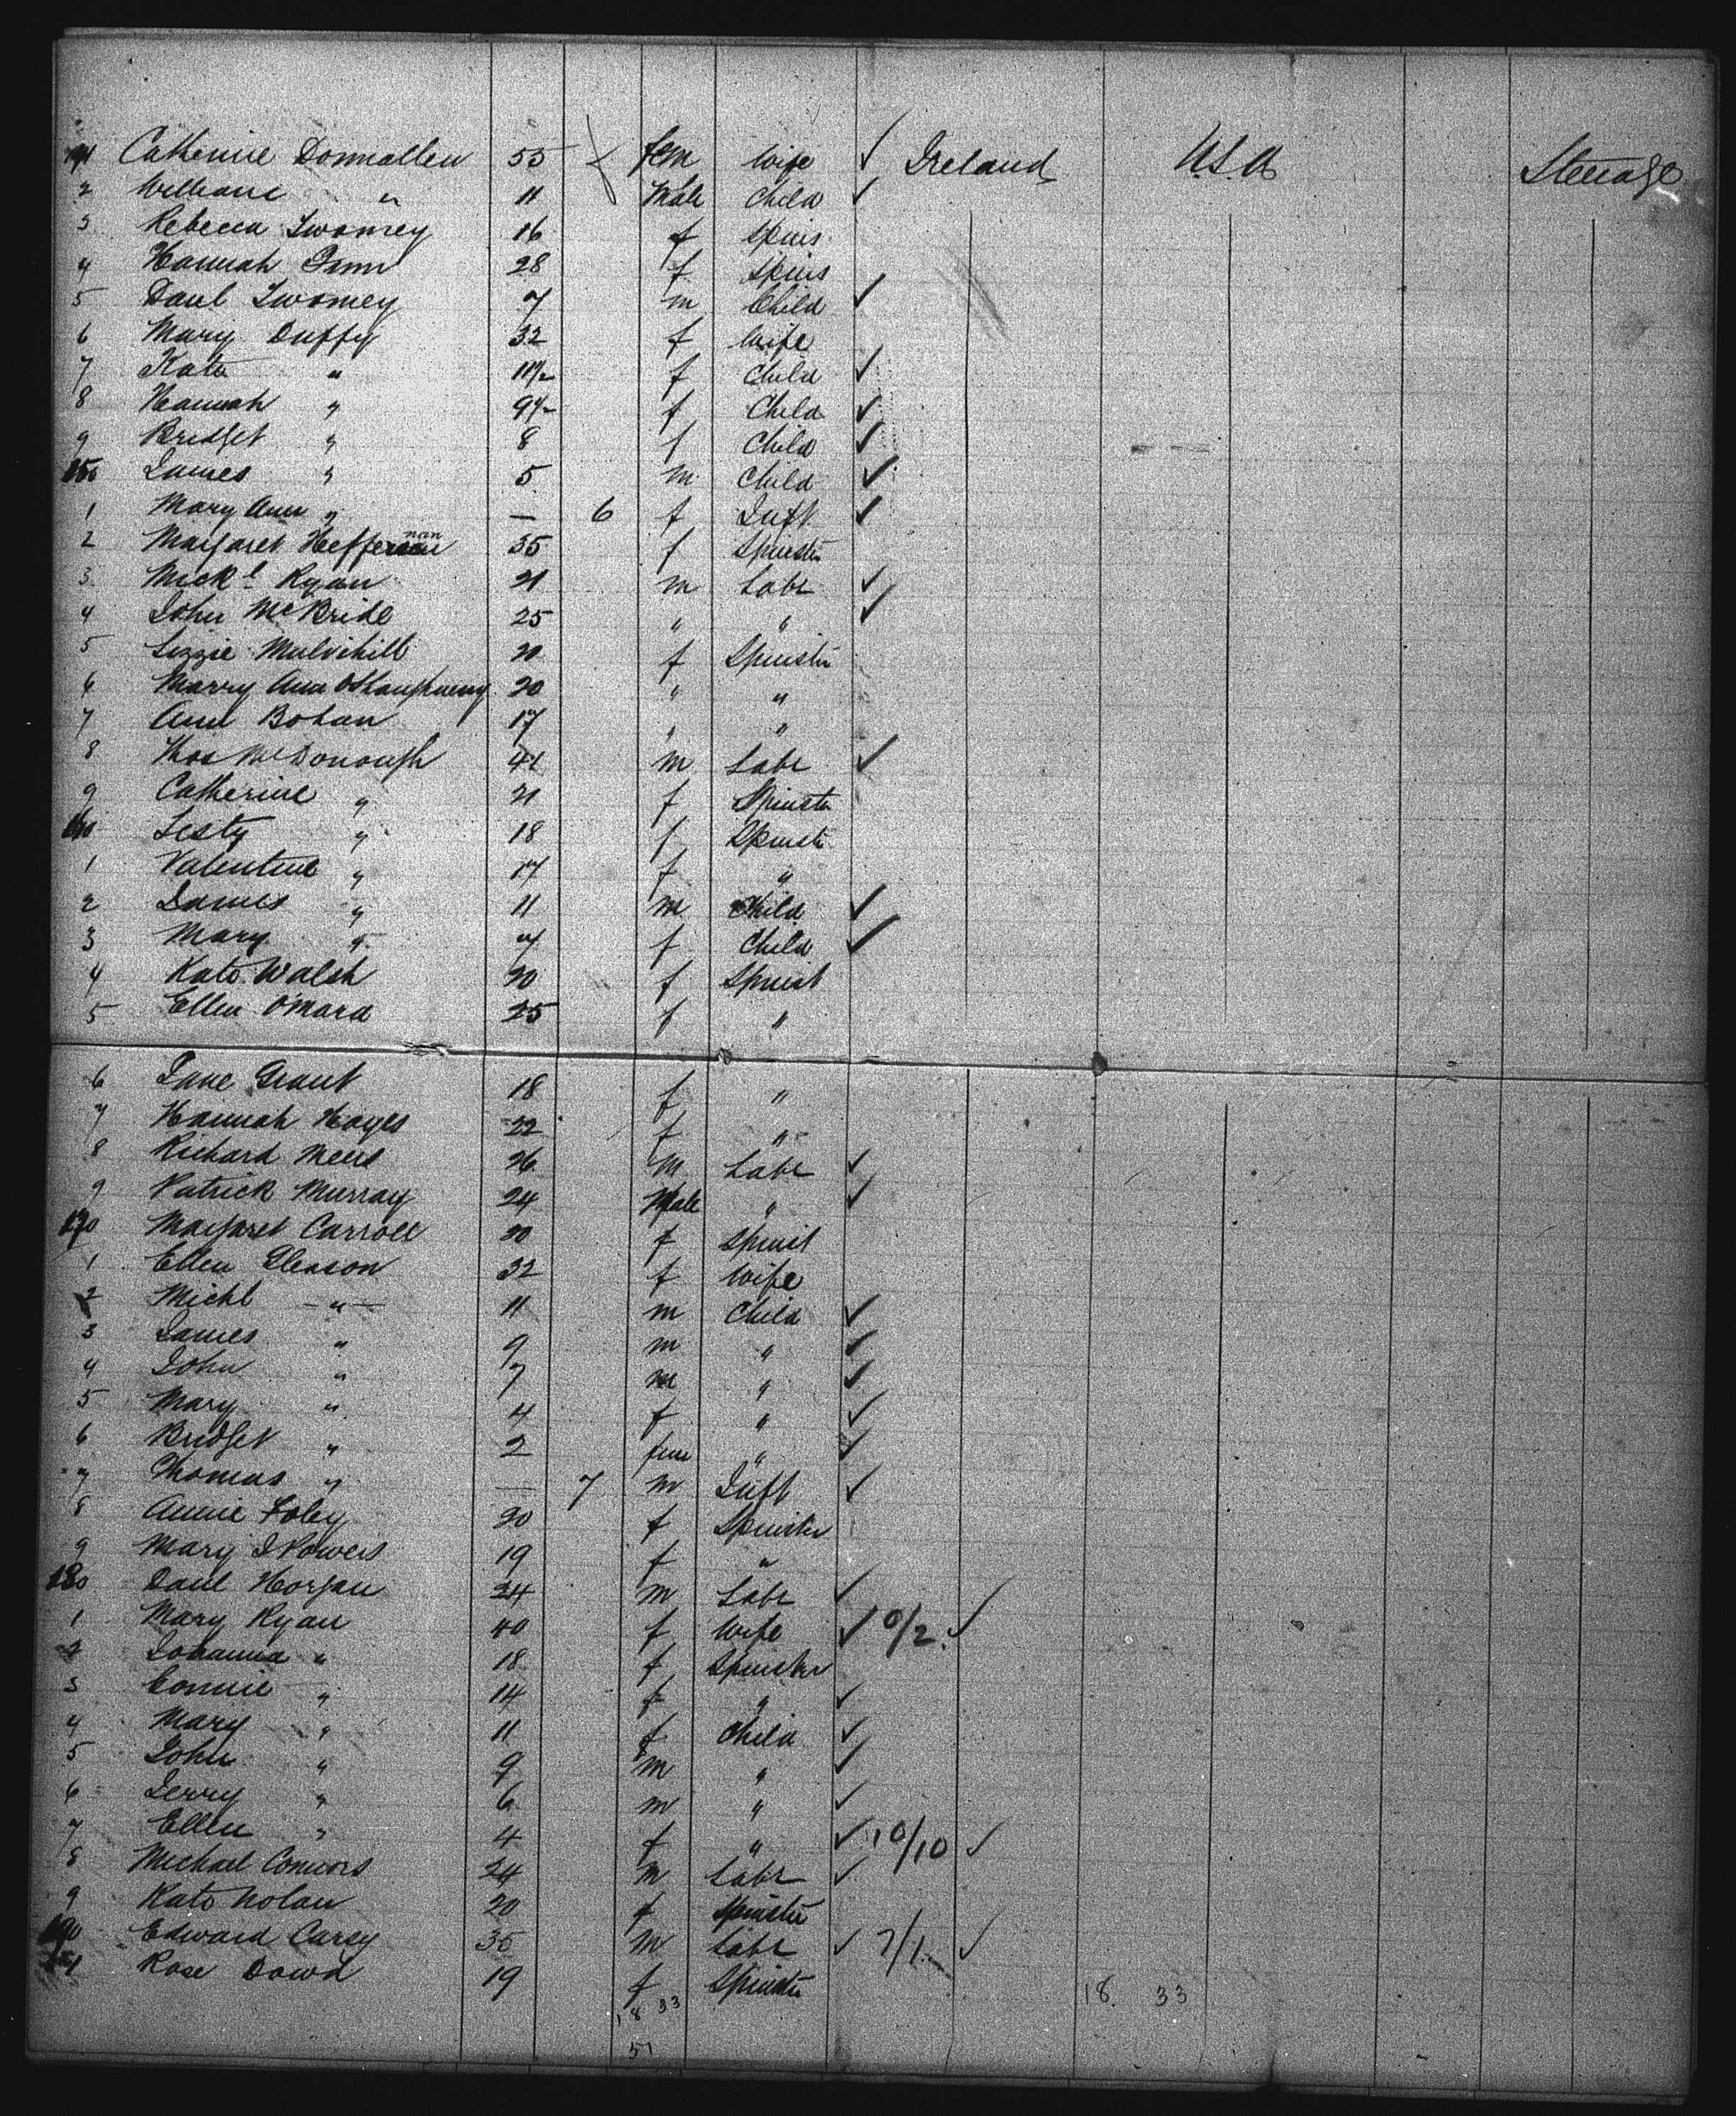 141 Catherine Donnallen 55 fem Wife ✓ Ireland U.S.A Steerage
2 William " 11 Male Child ✓
3 Rebecca Twomey 16 f Spins
4 Hannah 28 f Spins
5 Danl Twomey 7 m Child ✓
6 Mary Duffy 32 f Wife
7 Kate " 11 1/2 f Child ✓
8 Hannah " 9 1/2 f Child ✓
9 Bridget " 8 f Child ✓
150 James " 5 m Child ✓
1 Mary Ann " — 6 f Inft ✓
2 Margaret Heffernan 35 f Spinster
3 Mickl Ryan 21 m Labr ✓
4 John McBride 25 " " ✓
5 Lizzie Mulvihill 20 f Spinster
6 Marry Ann OShaughnessy 20 " "
7 Ann Bohan 17 " "
8 Thos McDonough 41 m Labr ✓
9 Catherine " 21 f Spinstr
160 Lesty " 18 f Spinstr
1 Valentine " 17 f "
2 James " 11 m Child ✓
3 Mary " 7 f Child ✓
4 Kate Walsh 20 f Spinst
5 Ellen OMara 25 f "
6 Jane Grant 18 f "
7 Hannah Hayes 22 f "
8 Richard 26 m Labr ✓
9 Patrick Murray 24 Male " ✓
170 Margaret Carroll 20 f Spinst
1 Ellen Gleason 32 f Wife
2 Michl " 11 m Child ✓
3 James " 9 m " ✓
4 John " 7 m " ✓
5 Mary " 4 f " ✓
6 Bridget " 2 fem " ✓
7 Thomas " — 7 m Inft ✓
8 Annie Foley 20 f Spinster
9 Mary J Powers 19 f "
180 Danl Horgan 24 m Labr ✓
1 Mary Ryan 40 f Wife ✓ 10/2 ✓
2 Johanna " 18 f Spinster
3 Connie " 14 f " ✓
4 Mary " 11 f Child ✓
5 John " 9 m " ✓
6 Jerry " 6 m " ✓
7 Ellen " 4 f " ✓ 10/10 ✓
8 Michael Connors 24 m Labr ✓
9 Kate Nolan 20 f Spinster
190 Edward Carey 35 m Labr ✓ 7/1 ✓
191 Rose Dowd 19 f Spinster
18 33 18. 33
51